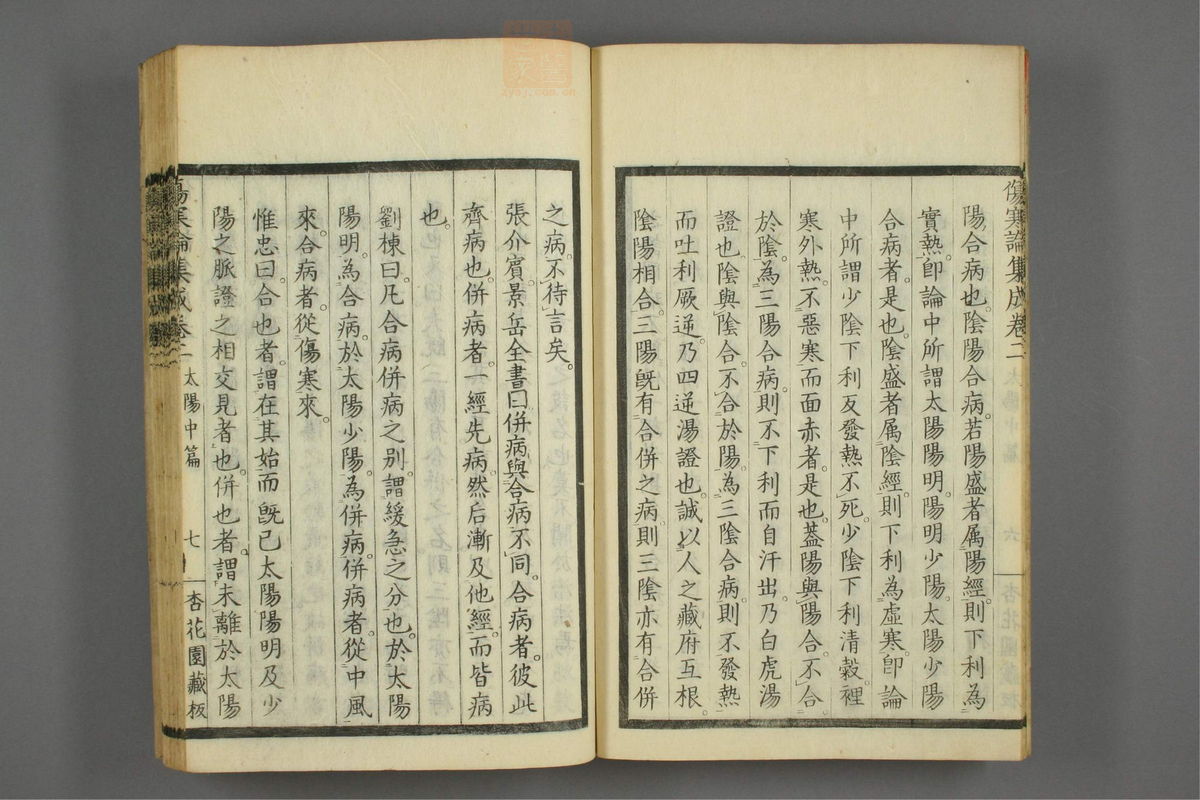 傷寒論集成卷二
陽合病也。陰陽合病。若陽盛者属陽經。則下利為
實熱。卽論中所謂太陽陽明。陽明少陽。太陽少陽
合病者。是也。陰盛者属陰經。則下利為虛寒。卽論
中所謂少陰下利反發熱。不死。少陰下利清穀。裡
寒外熱。不惡寒而面赤者。是也。蓋陽與陽合。不合
於陰。為三陽合病。則不下利而自汗出。乃白虎湯
證也。陰與陰合。不合於陽。為三陰合病。則不發熱
而吐利厥逆。乃四逆湯證也。誠以人之藏府互根。
陰陽相合。三陽既有合併之病。則三陰亦有合併
之病。不待言矣。
張介賓景岳全書曰。併病與合病不同。合病者。彼此
齊病也。併病者。一經先病。然后漸及他經。而皆病
也。
劉棟曰。凡合病併病之別。謂緩急之分也。於太陽
陽明。為合病。於太陽少陽。為併病。併病者。從中風
來。合病者。從傷寒來。
惟忠曰。合也者。謂在其始而既已太陽陽明及少
陽之脈證之相交見者也。併也者。謂未離於太陽
傷寒論集成卷二 太陽中篇 七 杏花園藏板